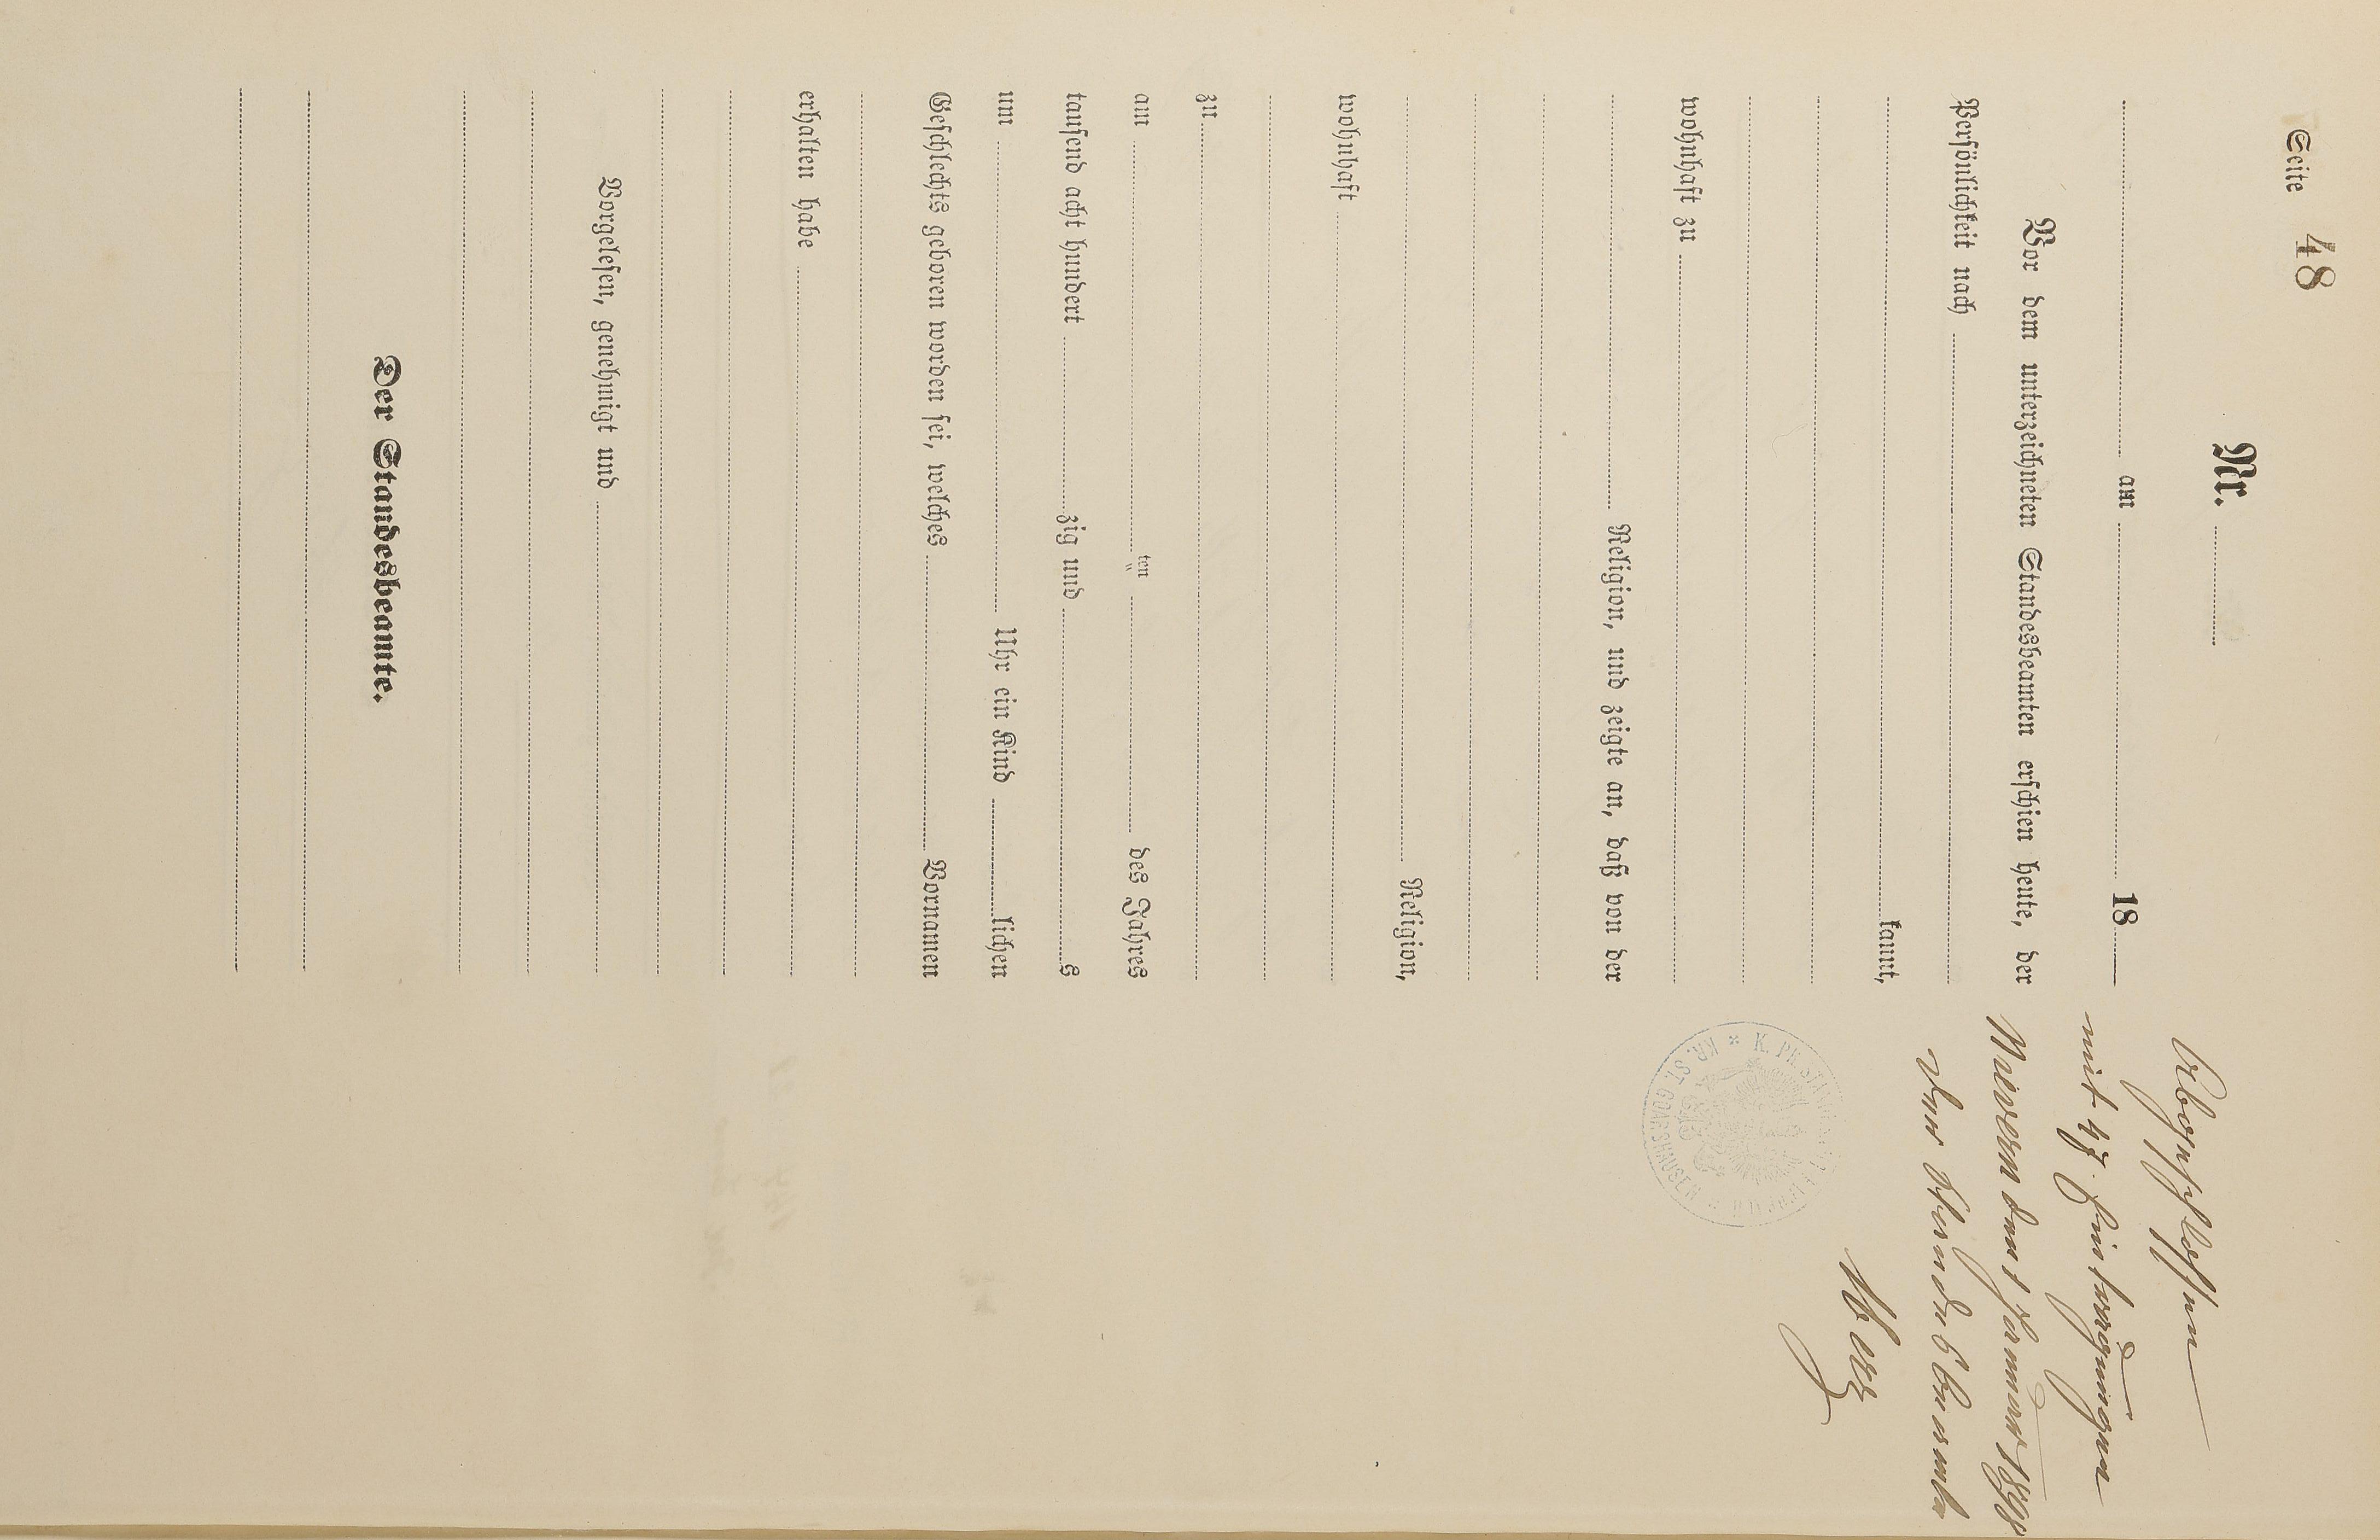 Seite 48
Nr.
am 18
Vor dem unterzeichneten Standesbeamten erschien heute, der
Persönlichkeit nach
kannt,
wohnhaft zu
Religion, und zeigte an, daß von der
Religion,
wohnhaft
zu
am ten des Jahres
tausend acht hundert zig und s
um Uhr ein Kind lichen
Geschlechts geboren worden sei, welches Vornamen
erhalten habe
Vorgelesen, genehmigt und
Der Standesbeamte.
Abgeschlossen
mit 47 Eintragungen
Nievern den 1 Januar
Der Standesbeamte
K. PR. KR. ST. GOARSHAUSEN